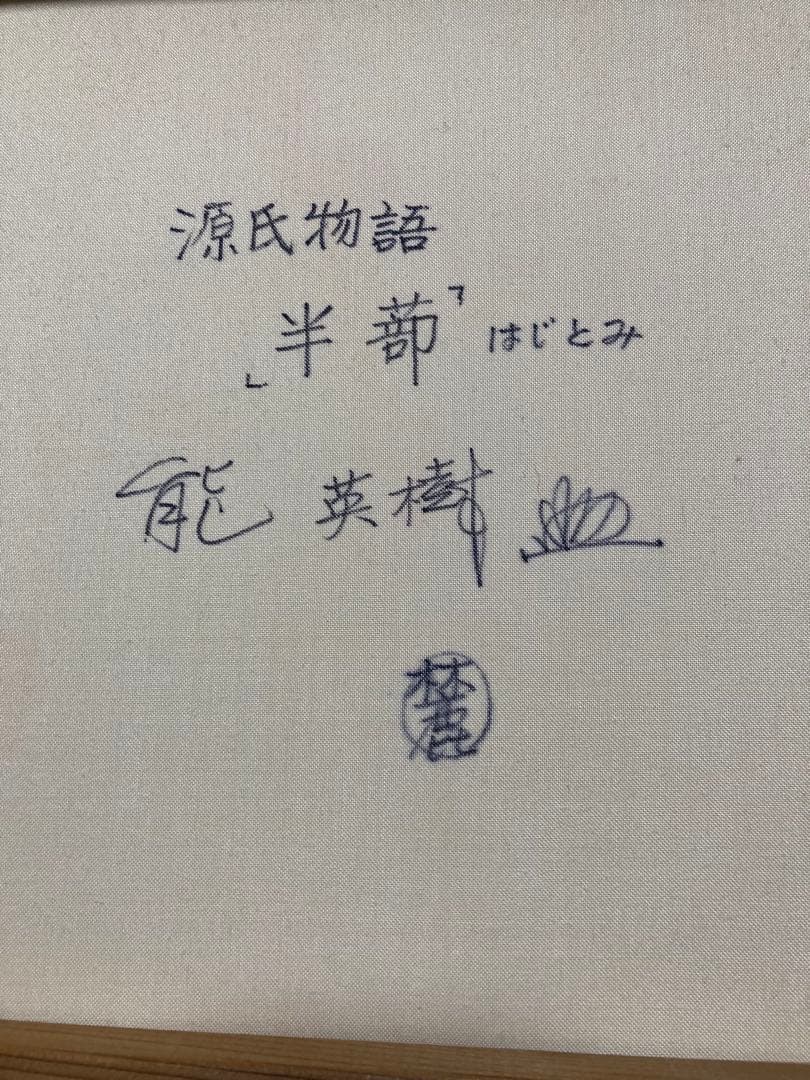 源氏物語
「半蔀」はじとみ
能 英樹
麓